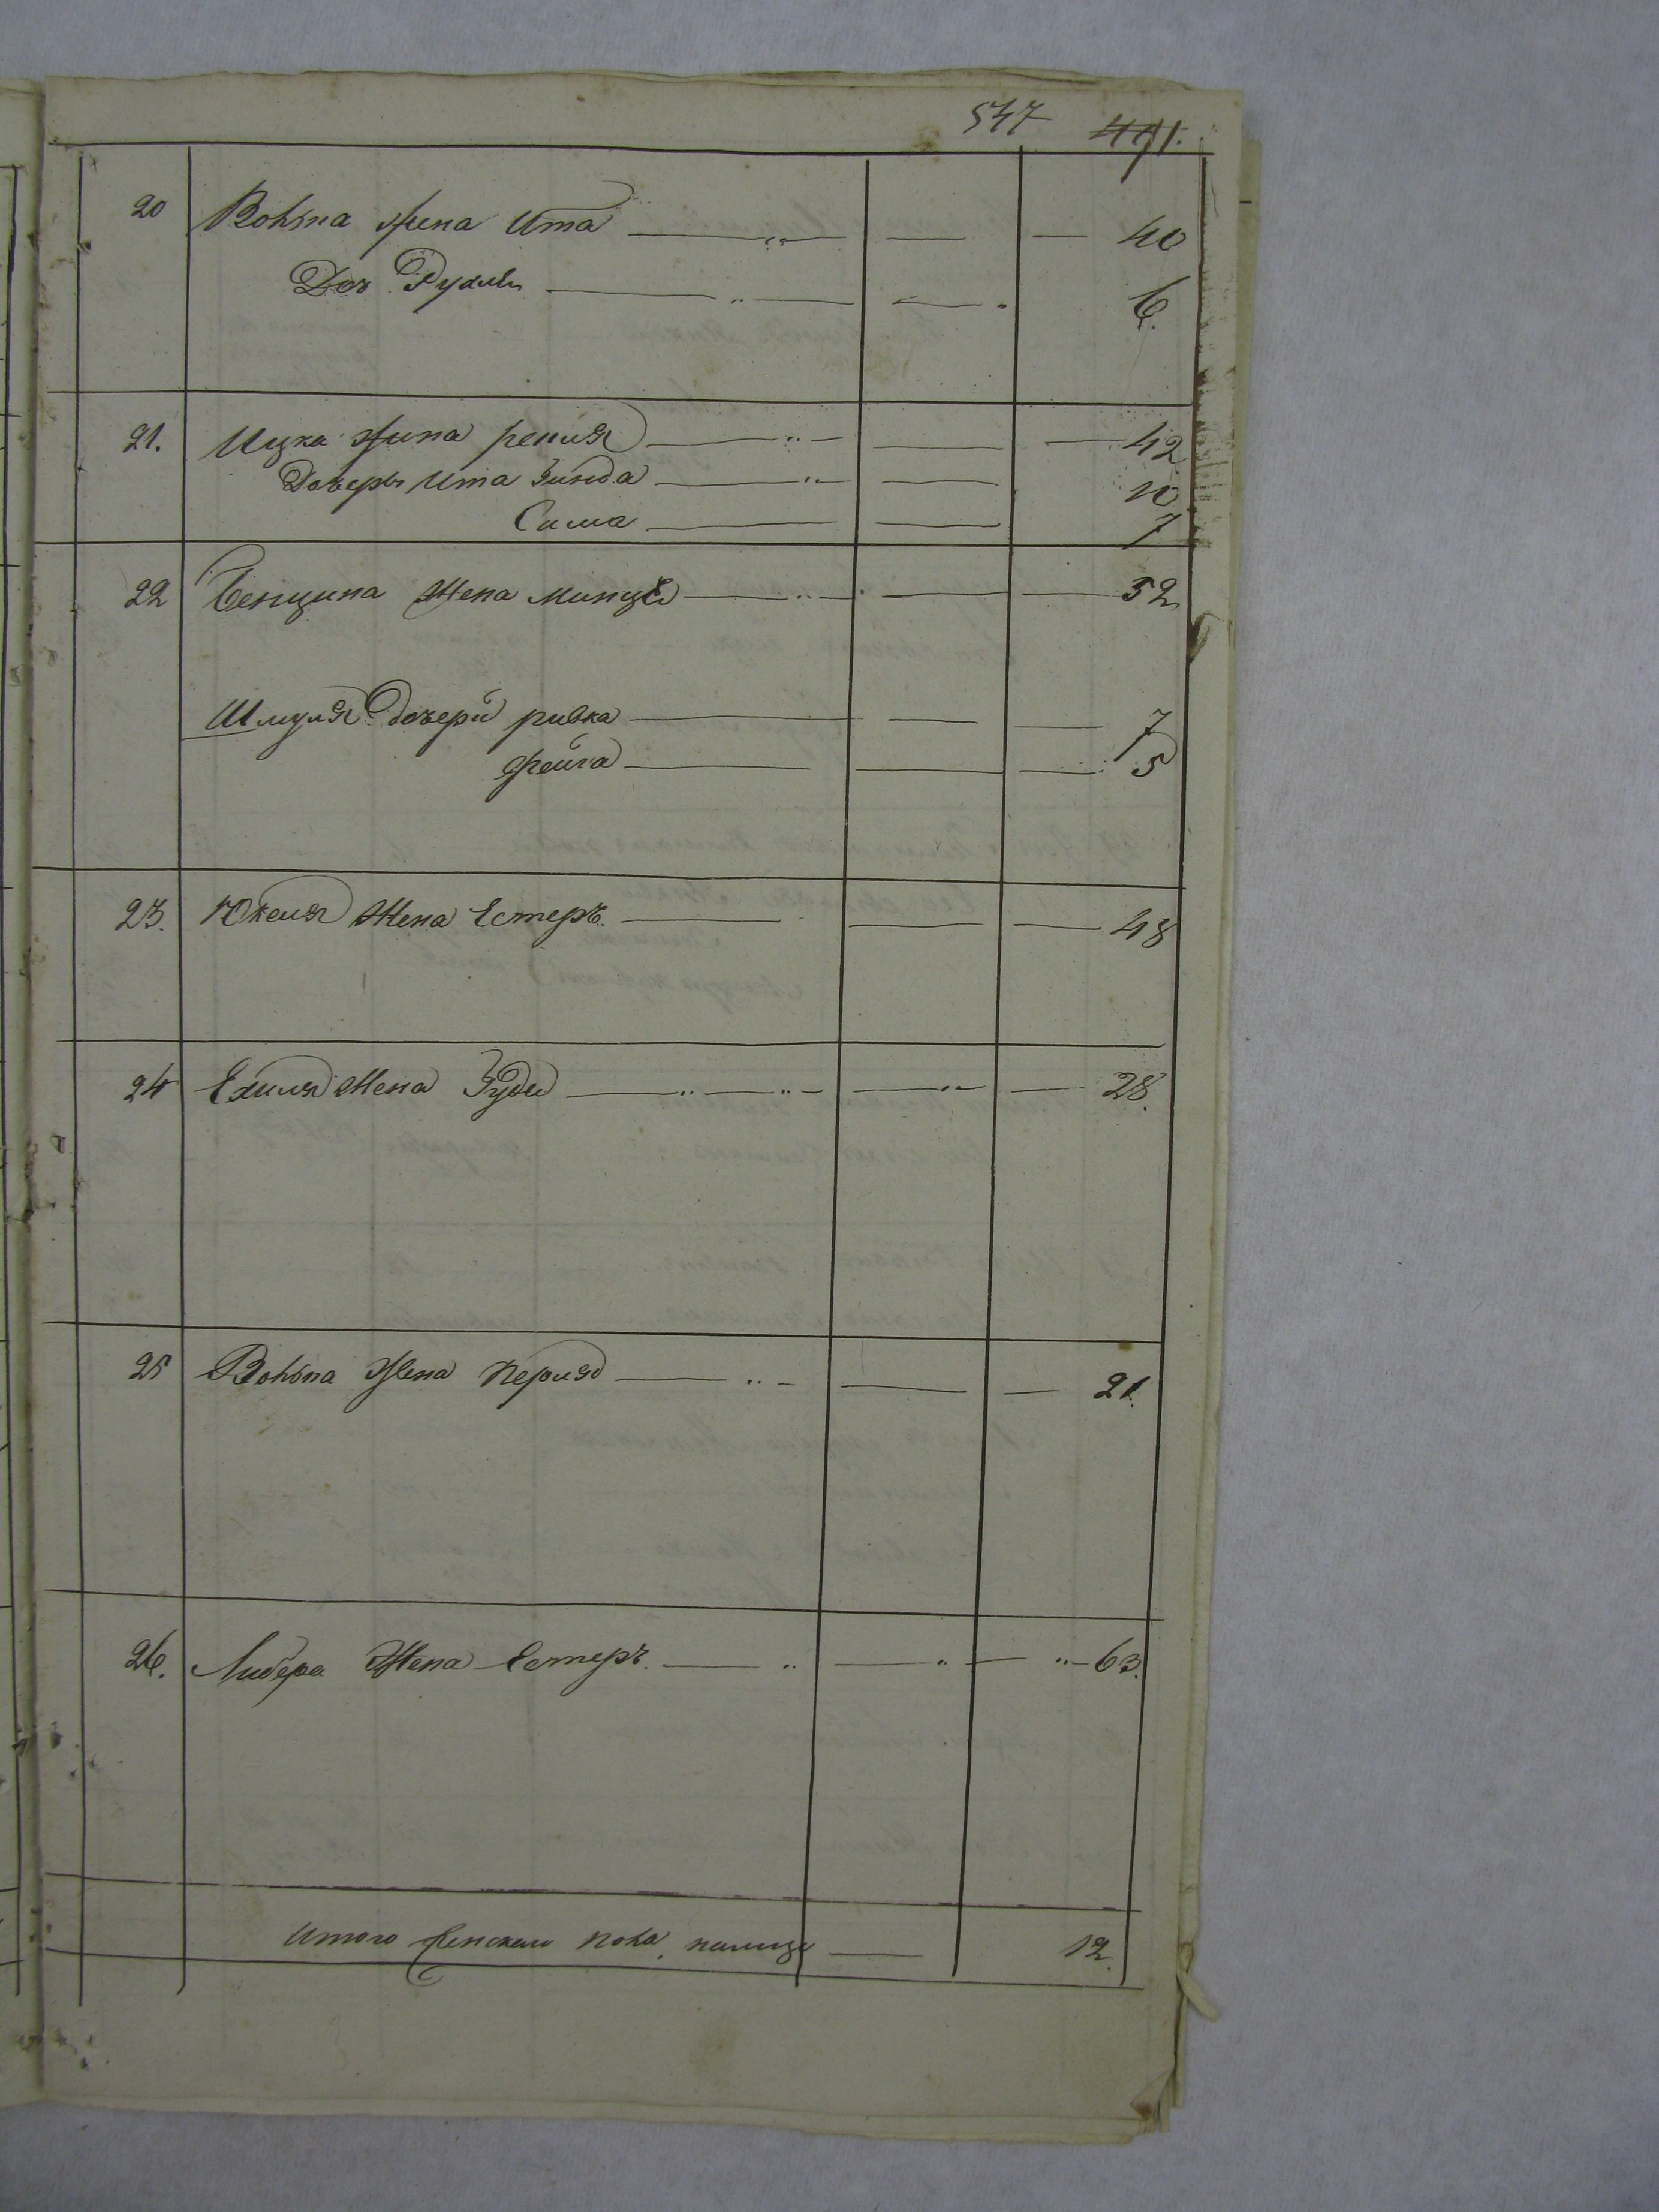 547 491.
20 Вольѳа жена Ита 40
Доч Рухля 6.
21. Ицка жина рения 42
Дочеры Ита Зинда 10
Сима 7
22 Бенциина Жена минцы 52
Шмуля дочери ривка 7
фейга 5
23. Юкеля Жена Естеръ 48
24 Ехиля Жена Зуди 28.
25 Вольѳа Жена Перля 21.
26. Либера Жена Естеръ. 63.
Итого женскаго пола налицо 12.